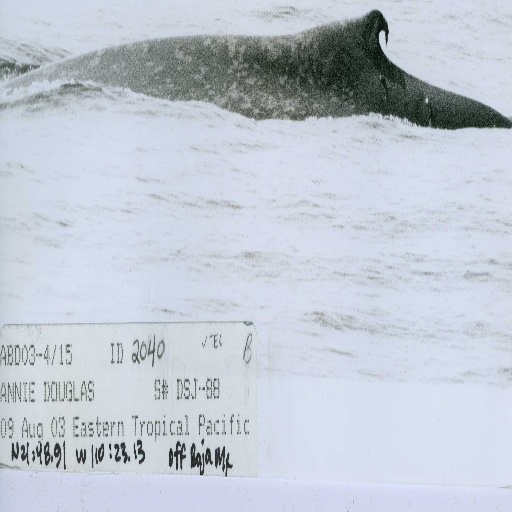 ABD03-4/15 ID 2040 B
ANNIE DOUGLAS S# DSJ-88
09 Aug 03 Eastern Tropical Pacific
N21:48.91 W110:23.13 off Baja Mx